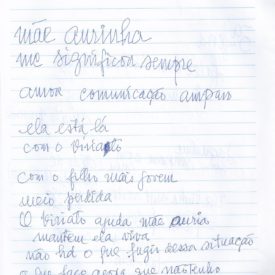 mãe aurinha
me significou sempre
amor comunicação amparo
ela está lá
com o Viriato
com o filho mais jovem
meio perdida
O Viriato ajuda mãe auria
mantem ela viva
não há o que fugir dessa situação
o que faço agora que não tenho